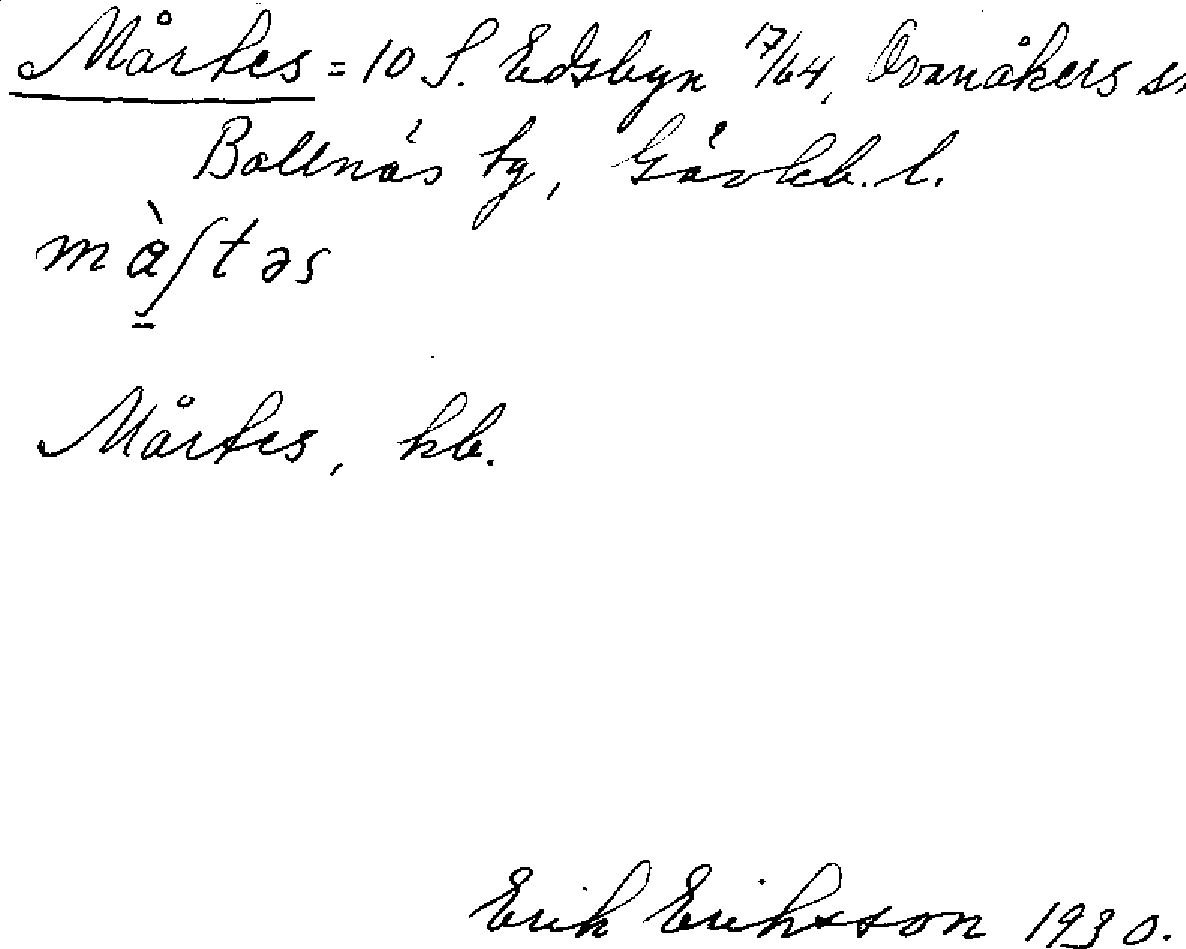 Mårtes = 10 S. Edsbyn 17/64, Ovanåkers sn
Bollnäs tg, Gävleb. l.
mὰʃtəs
Mårtes, kb.
Erik Eriksson 1930.